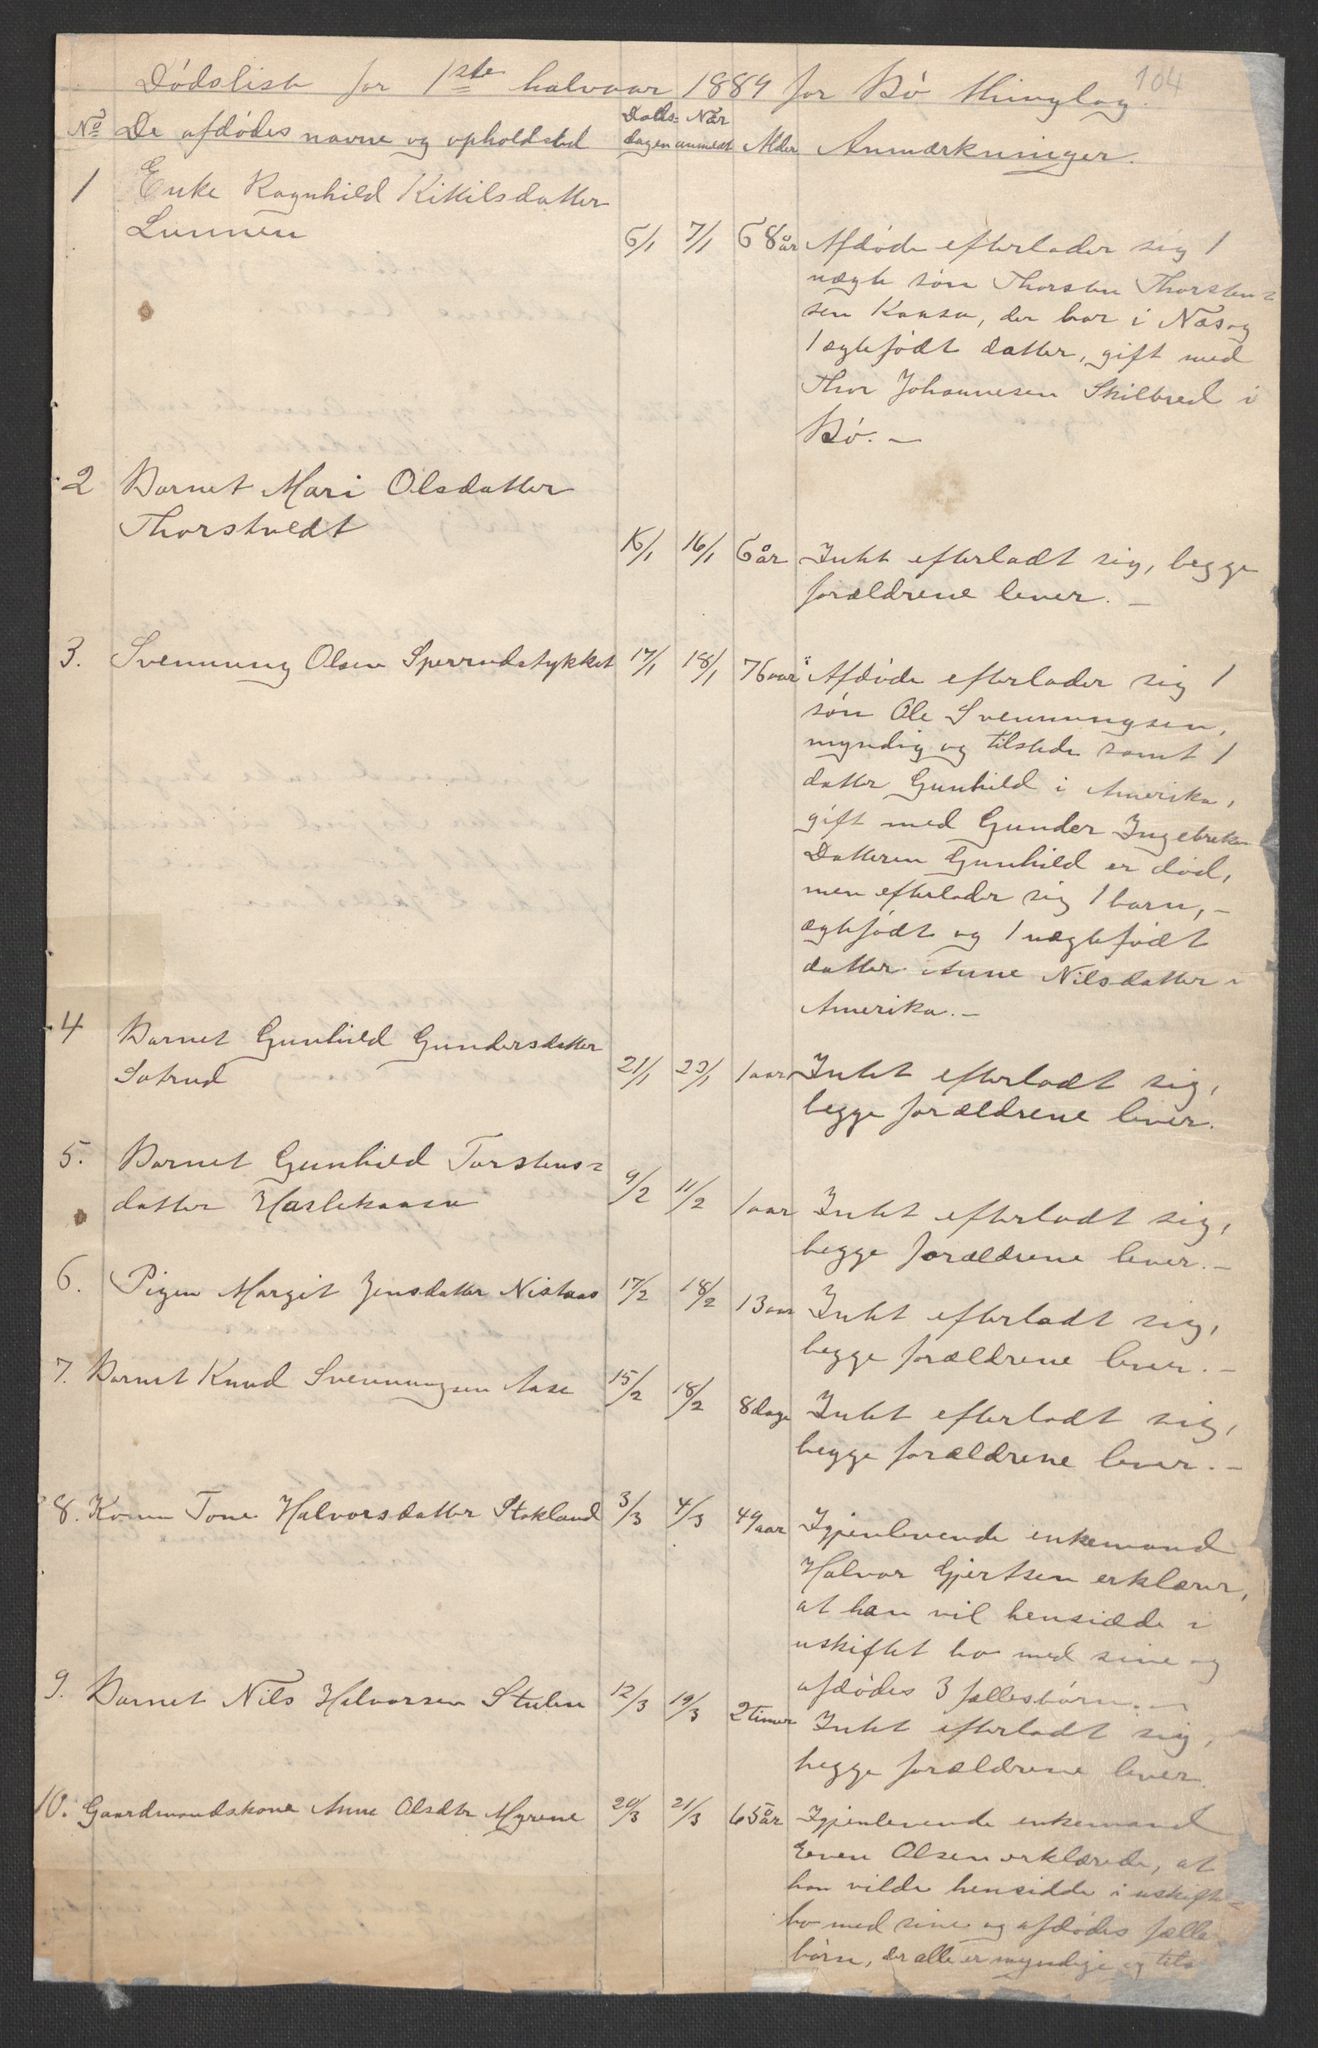 104
Dødsliste for 1ste halvaar 1889 for Bø thinglag.
No De afdødes navne og opholdsted Døds- dagen Når anmeldt Alder Anmærkninger.
1 Enke Ragnhild Kittilsdatter
Lunnen 5/1 7/1 68 år Afdøde efterlader sig 1
uægte søn Thorsten Thorsten=
sen Kaasa, der bor i Næs og
1 ægtefødt datter, gift med
Thor Johannesen Skilbred i
Bø. —
2 Barnet Mari Olsdatter
Thorstvedt 15/1 16/1 6 år Intet efterladt sig, begge
forældrene lever. —
3. Svennung Olsen Sperrudstykket 17/1 18/1 76 aar Afdøde efterlader sig 1
søn Ole Svennungsen,
myndig og tilstede samt 1
datter Gunhild i Amerika,
gift med Gunder Ingebretsen
Datteren Gunhild er død,
men efterlader sig 1 barn, —
ægtefødt og 1 uægtefødt
datter Anne Nilsdatter i
Amerika. —
4 Barnet Gunhild Gundersdatter
Satrud 21/1 22/1 1 aar Intet efterladt sig,
begge forældrene lever.
5. Barnet Gunhild Torstens=
datter Haslekaasa 9/2 11/2 1 aar Intet efterladt sig,
begge forældrene lever. —
6. Pigen Margit Jensdatter Nistaas 17/2 18/2 13 aar Intet efterladt sig,
begge forældrene lever. —
7. Barnet Knud Svennungsen Aase 15/2 18/2 8 dage Intet efterladt sig,
begge forældrene lever. —
8. Konen Tone Halvorsdatter Stokland 3/3 4/3 49 aar Igjenlevende enkemand
Halvor Gjertsen erklærer,
at han vil hensidde i
uskiftet bo med sine og
afdødes 3 fællesbørn. —
9. Barnet Nils Halvorsen Stulen 12/3 19/3 2 timer Intet efterladt sig,
begge forældrene lever.
10. Gaardmandskone Anne Olsdtr Myrene 20/3 21/3 65 år Igjenlevende enkemand
Even Olsen erklærede, at
han vilde hensidde i uskift
bo med sine og afdødes fælle
børn, der alle er myndige og tils